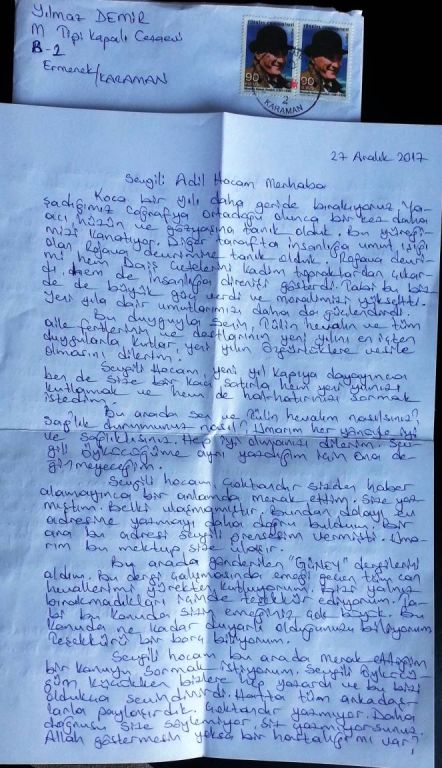 Yılmaz DEMİR
M Tipi Kapalı Cezaevi
B-2
Ermenek/KARAMAN
TÜRKİYE CUMHURİYETİ
90
90
2
KARAMAN
27 Aralık 2017
Sevgili Adil Hocam Merhaba
Koca bir yılı daha geride bırakıyoruz. Ya-
şadığımız coğrafya ortadoğu olunca bir kez daha
acı, hüzün ve gözyaşına tanık olduk. Bu yüreği-
mizi kanatıyor. Diğer tarafta insanlığa umut ışığı
olan Rojava devrimine tanık olduk. Rojava devri-
mi hem Daiş çetelerini kadim topraklardan çıkar-
dı hem de insanlığa direnişi gösterdi. Tabi bu biz-
de de büyük güç verdi ve moralimizi yükseltti.
Yeni yıla dair umutlarımızı daha da güçlendirdi.
Bu duyguyla senin, Tülin hevalın ve tüm
aile fertlerinin ve dostlarının yeni yılını en içten
duygularla kutlar, yeni yılın özgürlüklere vesile
olmasını dilerim.
Sevgili Hocam yeni yıl kapıya dayanınca
ben de size bir kaç satırla hem yeni yılınızı
kutlamak ve hem de hal-hatırınızı sormak
istedim.
Bu arada sen ve Tülin hevalım nasılsınız?
Sağlık durumunuz nasıl? Umarım her yönüyle iyi
ve sağlıklısınız. Hep iyi olmanızı dilerim. Sev-
gili Öykücüğüme ayrı yazdığım için ona de-
ğinmeyeceğim.
Sevgili hocam çoktandır sizden haber
alamayınca bir anlamda merak ettim. Size yaz-
mıştım. Belki ulaşmamıştır. Bundan dolayı ev
adresine yazmayı daha doğru buldum. Bir
ara bu adresi sevgili prensesim vermişti. Uma-
rım bu mektup size ulaşır.
Bu arada gönderilen "GÜNEY" dergilerini
aldım. Bu dergi çalışmasında emeği geçen tüm can
hevallerimi yürekten kutluyorum. Bizi yalnız
bırakmadıkları içinde teşekkür ediyorum. Ta-
bi bu konuda sizin emeğiniz çok büyük. Bu
konuda ne kadar duyarlı olduğunuzu biliyorum
Teşekkürü bir borç biliyorum.
Sevgili hocam bu arada merak ettiğim
bir konuyu sormak istiyorum. Sevgili Öykücü-
ğüm küçükken bizlere hep yazardı ve bu bizi
oldukça sevindirirdi. Hatta tüm arkadaş-
larla paylaşırdık. Çoktandır yazmıyor. Daha
doğrusu size söylemiyor, siz yazmıyorsunuz.
Allah göstermesin yoksa bir hastalığı mı var?